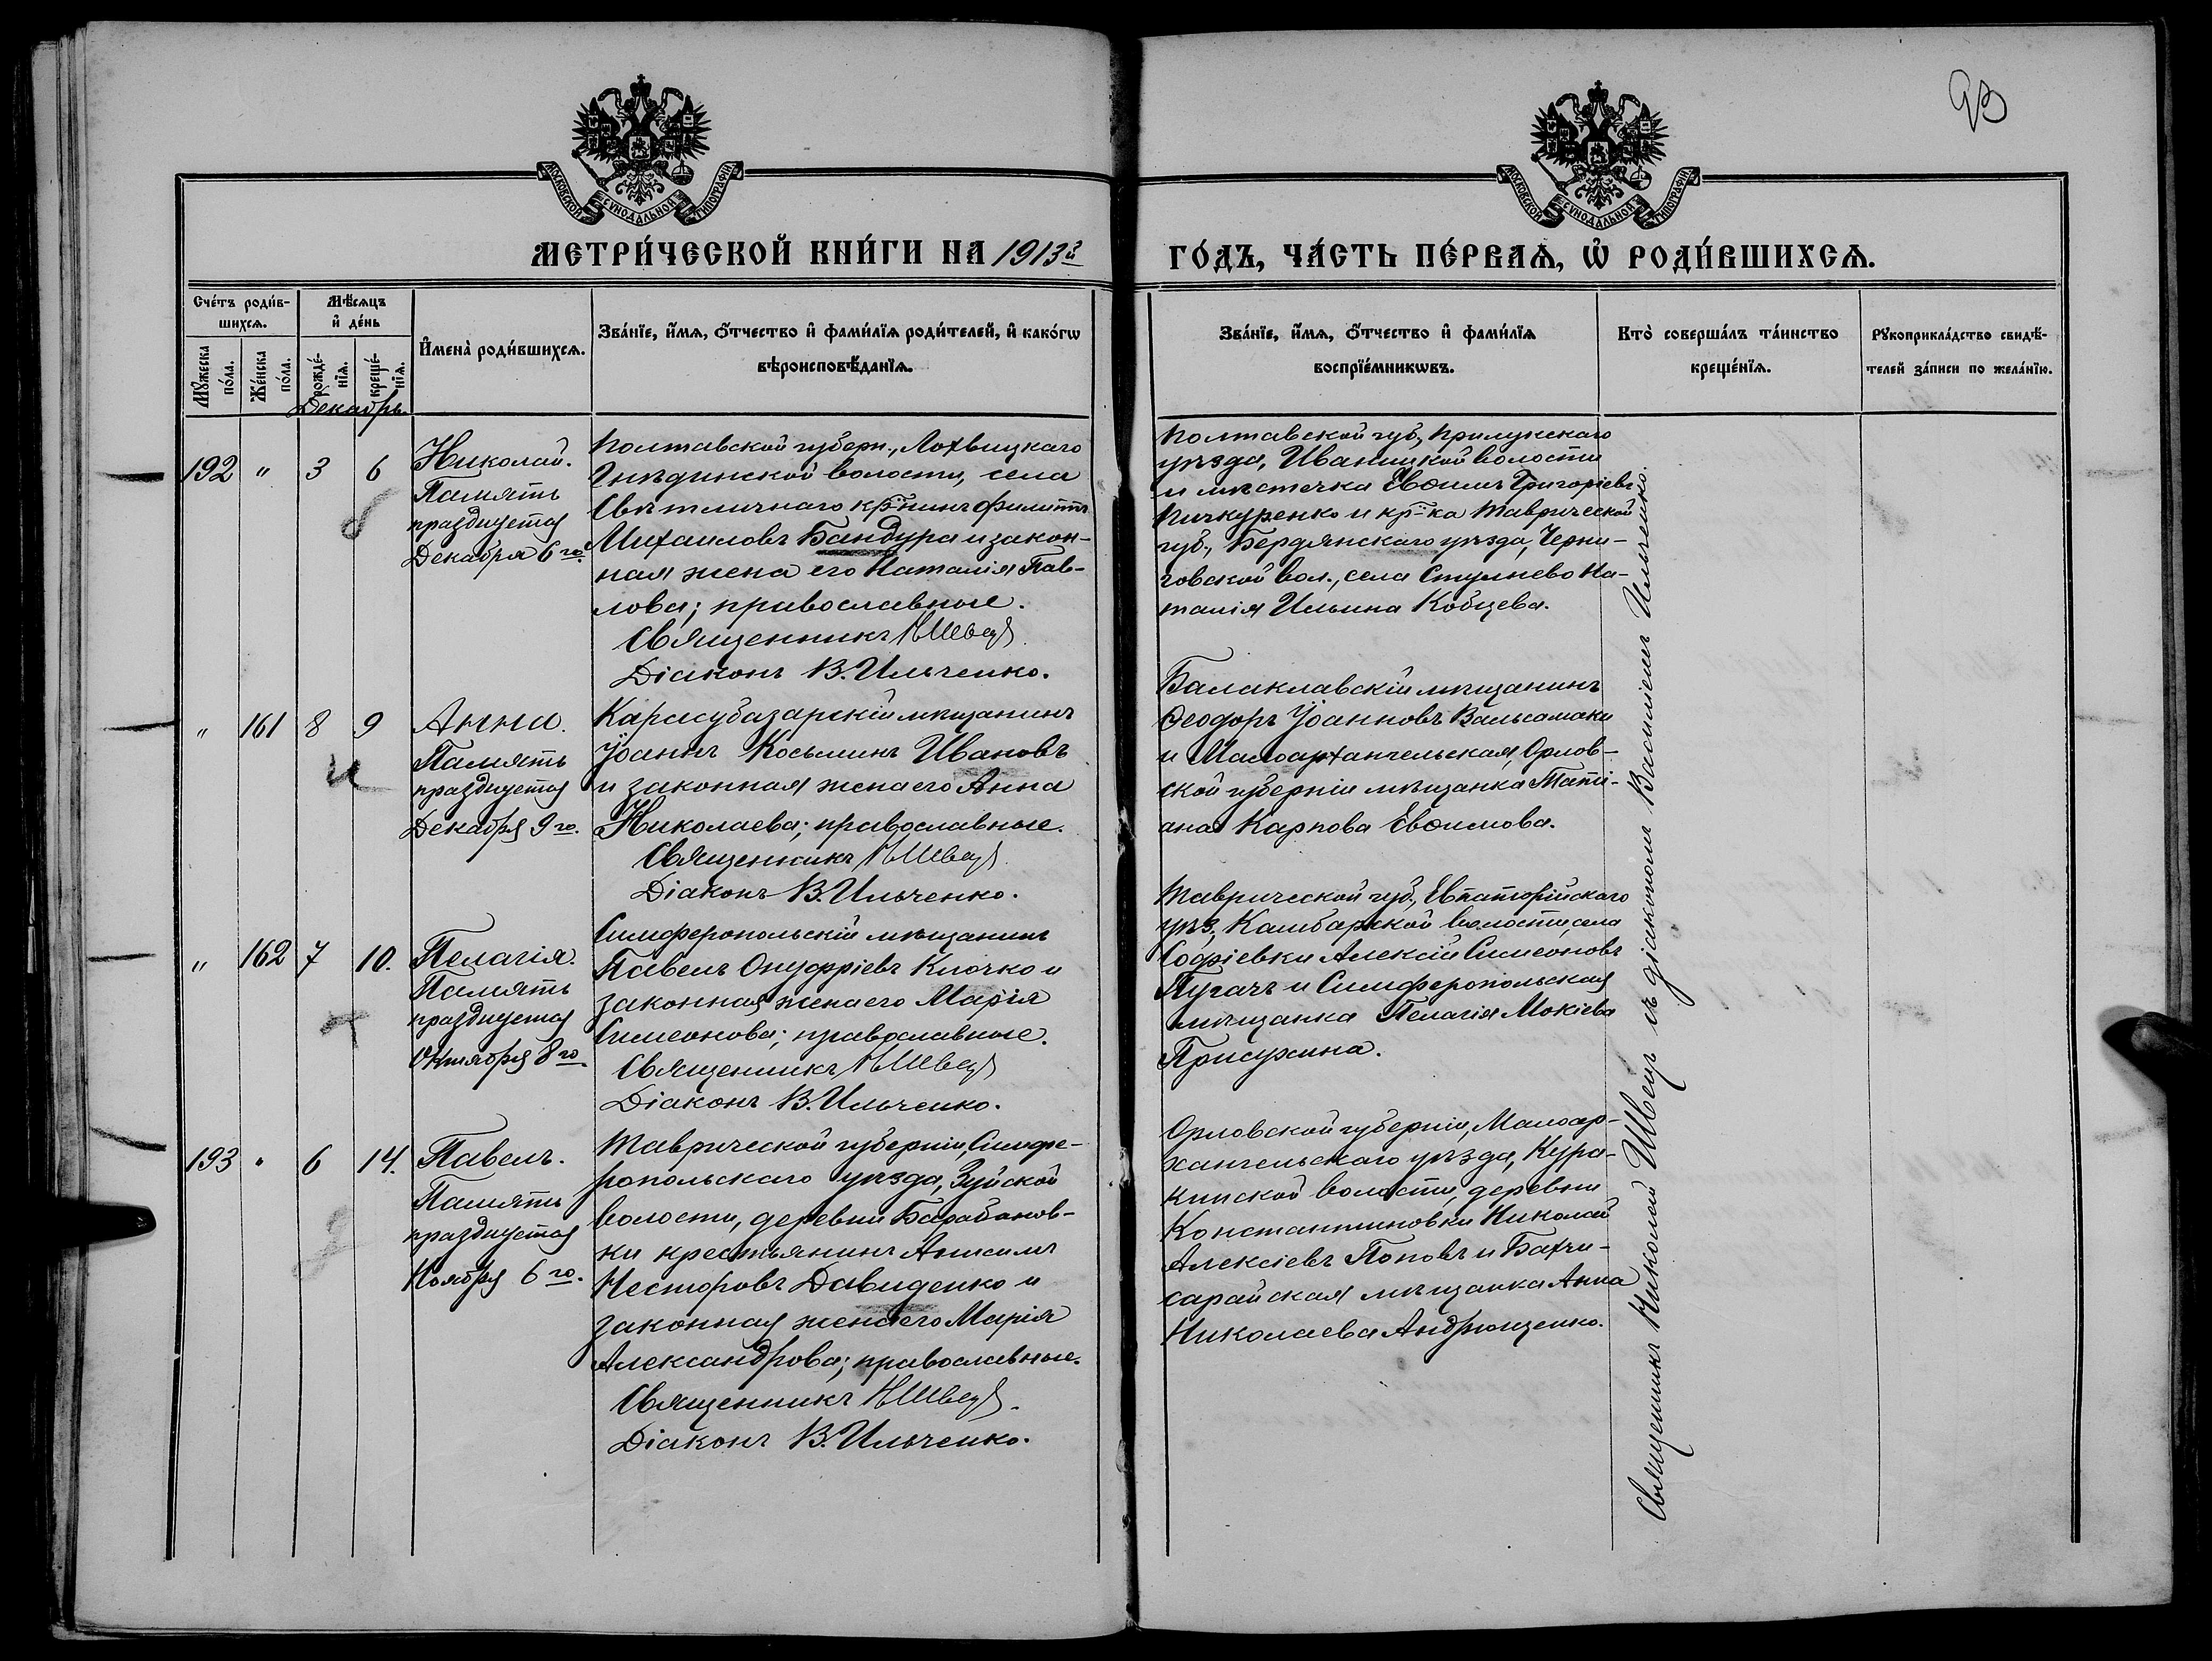 93
МОСКОВСКОЙ СѴНОДАЛЬНОЙ ТИПОГРАФІИ
МОСКОВСКОЙ СѴНОДАЛЬНОЙ ТИПОГРАФІИ
МЕТРИ́ЧЕСКОЙ КНИ́ГИ НА 1913й
ГО́ДЪ, ЧА́СТЬ ПЕ́РВАѦ, Ѽ РОДИ́ВШИХСѦ.
Сче́тъ роди́в-
шихсѧ.
Мꙋ́жеска по́ла.
Же́нска по́ла.
Мѣ́сѧцъ
и҆ де́нь
рожде́-
нїѧ.
креще́-
нїѧ.
И҆мена̀ роди́вшихсѧ.
Зва́нїе, и҆́мѧ, ѻ҆́тчество и҆ фами́лїѧ роди́телей, и҆ како́гѡ
вѣроисповѣ́данїѧ.
Зва́нїе, и҆́мѧ, ѻ҆́тчество и҆ фами́лїѧ
воспрїе́мникѡвъ.
Кто̀ соверша́лъ та́инство
креще́нїѧ.
Рꙋкоприкла́дство свидѣ́-
телей за́писи по жела́нїю.
Декабрь.
192 " 3 6
Николай.
Память
празднуется
Декабря 6го.
Полтавской губерн., Лохвицкаго
Гнѣдинской волости, села
Свѣтличнаго кр-нинъ Филиппъ
Михаиловъ Бандура и закон-
ная жена его Наталія Пав-
лова; православные.
Священникъ Н Швецъ
Діаконъ В. Ильченко.
Полтавской губ., Прилукскаго
уѣзда, Иваницкой волости
и мѣстечка Евѳимъ Григоріевъ
Пичкуренко и кр-ка Таврической
губ., Бердянскаго уѣзда, Черни-
говской вол., села Стулнево На-
талія Ильина Кобцева.
" 161 8 9
Анна.
Память
празднуется
Декабря 9го.
Карасубазарскій мѣщанинъ
Іоаннъ Косьминъ Ивановъ
и законная жена его Анна
Николаева; православные.
Священникъ Н Швецъ
Діаконъ В. Ильченко.
Балаклавскій мѣщанинъ
Ѳеодоръ Іоанновъ Вальсамаки
и Малоархангельская, Орлов-
ской губерніи мѣщанка Тати-
ана Карпова Евѳимова.
" 162 7 10.
Пелагія.
Память
празднуется
Октября 8го.
Симферопольскій мѣщанинъ
Павелъ Онуфріевъ Клочко и
законная жена его Марія
Симеонова; православные.
Священникъ Н Швецъ
Діаконъ В. Ильченко.
Таврической губ., Евпаторійскаго
уѣз., Камбарской волости, села
Софіевки Алексій Симеоновъ
Пугачъ и Симферопольская
мѣщанка Пелагія Мокіева
Присухина.
193 " 6 14.
Павелъ.
Память
празднуется
Ноября 6го.
Таврической губерніи, Симфе-
ропольскаго уѣзда, Зуйской
волости, деревни Барабанов-
ки крестьянинъ Анисимъ
Несторовъ Давиденко и
законная жена его Марія
Александрова; православные.
Священникъ Н Швецъ.
Діаконъ В. Ильченко.
Орловской губерніи, Малоар-
хангельскаго уѣзда, Кура-
кинской волости, деревни
Константиновки Николай
Алексіевъ Поповъ и Бахчи-
сарайская мѣщанка Анна
Николаева Андрющенко.
Священникъ Николай Швецъ съ діакономъ Василіемъ Ильченко.